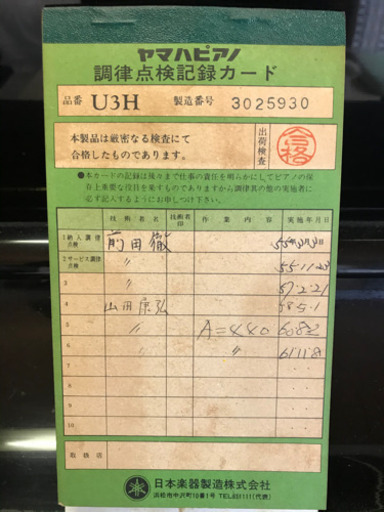 ヤマハピアノ
調律点検記録カード
品番 U3H 製造番号 3025930
本製品は厳密なる検査にて
合格したものであります。
出荷検査
合格
●本カードの記録は後々まで仕事の責任を明らかにしてピアノの保
存上重要な役目を果すものでありますから調律其の他の実施者に
必ず記入するようにお申しつけ下さい。
技術者名 技術者印 作業内容 実施年月日
1 納入調律点検 前田徹
2 サービス調律点検 〃 55.11.23
3 〃 57.2.21
4 山田康弘 58.5.1
5 〃 A=440
6 〃 〃 61.11.8
7
8
9
10
取扱店
日本楽器製造株式会社
浜松市中沢町10番1号 TEL 61 1111 (代表)